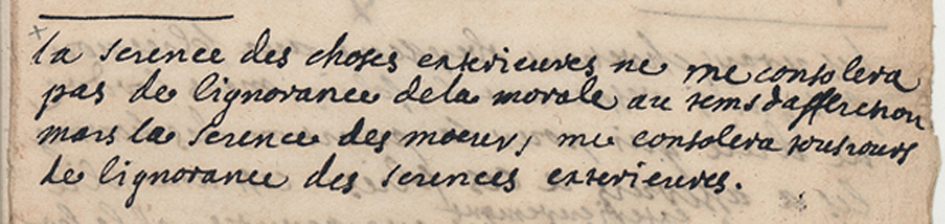 la science des choses exterieures ne me consolera
pas de lignorance dela morale au tems daffliction
mais la science des moeurs me consolera tousiours
de lignorance des sciences exterieures.